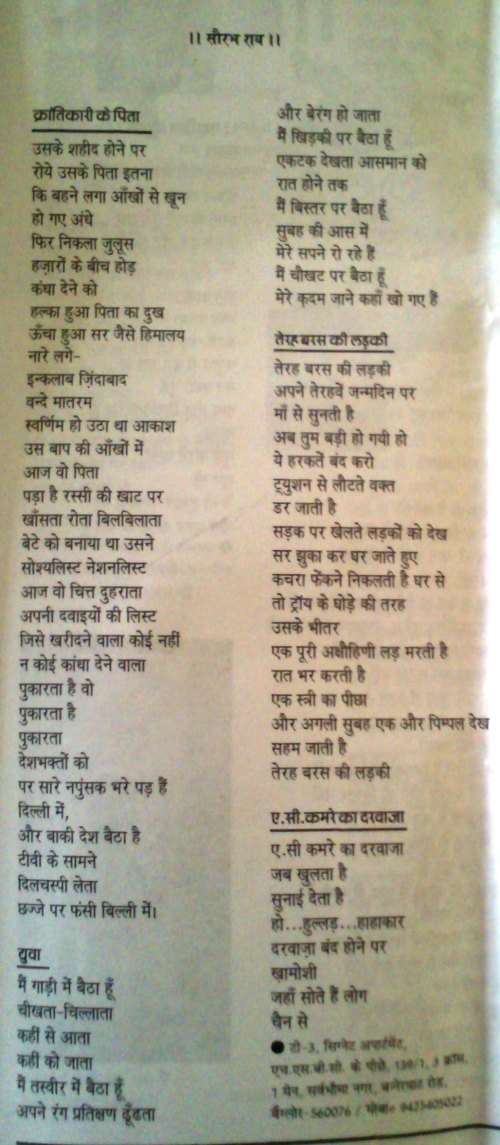 ।। सौरभ राय ।।
क्रांतिकारी के पिता
उसके शहीद होने पर
रोये उसके पिता इतना
कि बहने लगा आँखों से खून
हो गए अंधे
फिर निकला जुलूस
हज़ारों के बीच होड़
कंधा देने को
हल्का हुआ पिता का दुख
ऊँचा हुआ सर जैसे हिमालय
नारे लगे-
इन्कलाब ज़िंदाबाद
वन्दे मातरम
स्वर्णिम हो उठा था आकाश
उस बाप की आँखों में
आज वो पिता
पड़ा है रस्सी की खाट पर
खाँसता रोता बिलबिलाता
बेटे को बनाया था उसने
सोश्यलिस्ट नेशनलिस्ट
आज वो चित्त दुहराता
अपनी दवाइयों की लिस्ट
जिसे खरीदने वाला कोई नहीं
न कोई कांधा देने वाला
पुकारता है वो
पुकारता है
पुकारता
देशभक्तों को
पर सारे नपुंसक भरे पड़ हैं
दिल्ली में,
और बाकी देश बैठा है
टीवी के सामने
दिलचस्पी लेता
छज्जे पर फंसी बिल्ली में।
युवा
मैं गाड़ी में बैठा हूँ
चीखता-चिल्लाता
कहीं से आता
कहीं को जाता
मैं तस्वीर में बैठा हूँ
अपने रंग प्रतिक्षण ढूँढता
और बेरंग हो जाता
मैं खिड़की पर बैठा हूँ
एकटक देखता आसमान को
रात होने तक
मैं बिस्तर पर बैठा हूँ
सुबह की आस में
मेरे सपने रो रहे हैं
मैं चौखट पर बैठा हूँ
मेरे क़दम जाने कहाँ खो गए हैं
तेरह बरस की लड़की
तेरह बरस की लड़की
अपने तेरहवें जन्मदिन पर
माँ से सुनती है
अब तुम बड़ी हो गयी हो
ये हरकतें बंद करो
ट्युशन से लौटते वक्त
डर जाती है
सड़क पर खेलते लड़कों को देख
सर झुका कर घर जाते हुए
कचरा फेंकने निकलती है घर से
तो ट्रॉय के घोड़े की तरह
उसके भीतर
एक पूरी अक्षौहिणी लड़ मरती है
रात भर करती है
एक स्त्री का पीछा
और अगली सुबह एक और पिम्पल देख
सहम जाती है
तेरह बरस की लड़की
ए.सी.कमरे का दरवाजा
ए.सी कमरे का दरवाजा
जब खुलता है
सुनाई देता है
हो...हुल्लड़...हाहाकार
दरवाज़ा बंद होने पर
खामोशी
जहाँ सोते हैं लोग
चैन से
● टी-3, सिग्नेट अपार्टमेंट,
एच.एस.बी.सी. के पीछे, 139/1, 3 क्रॉस,
1 मेन, सर्वभौमा नगर, बन्नेरघाट रोड,
बैंग्लोर-560076 / मोबा० 9425405022